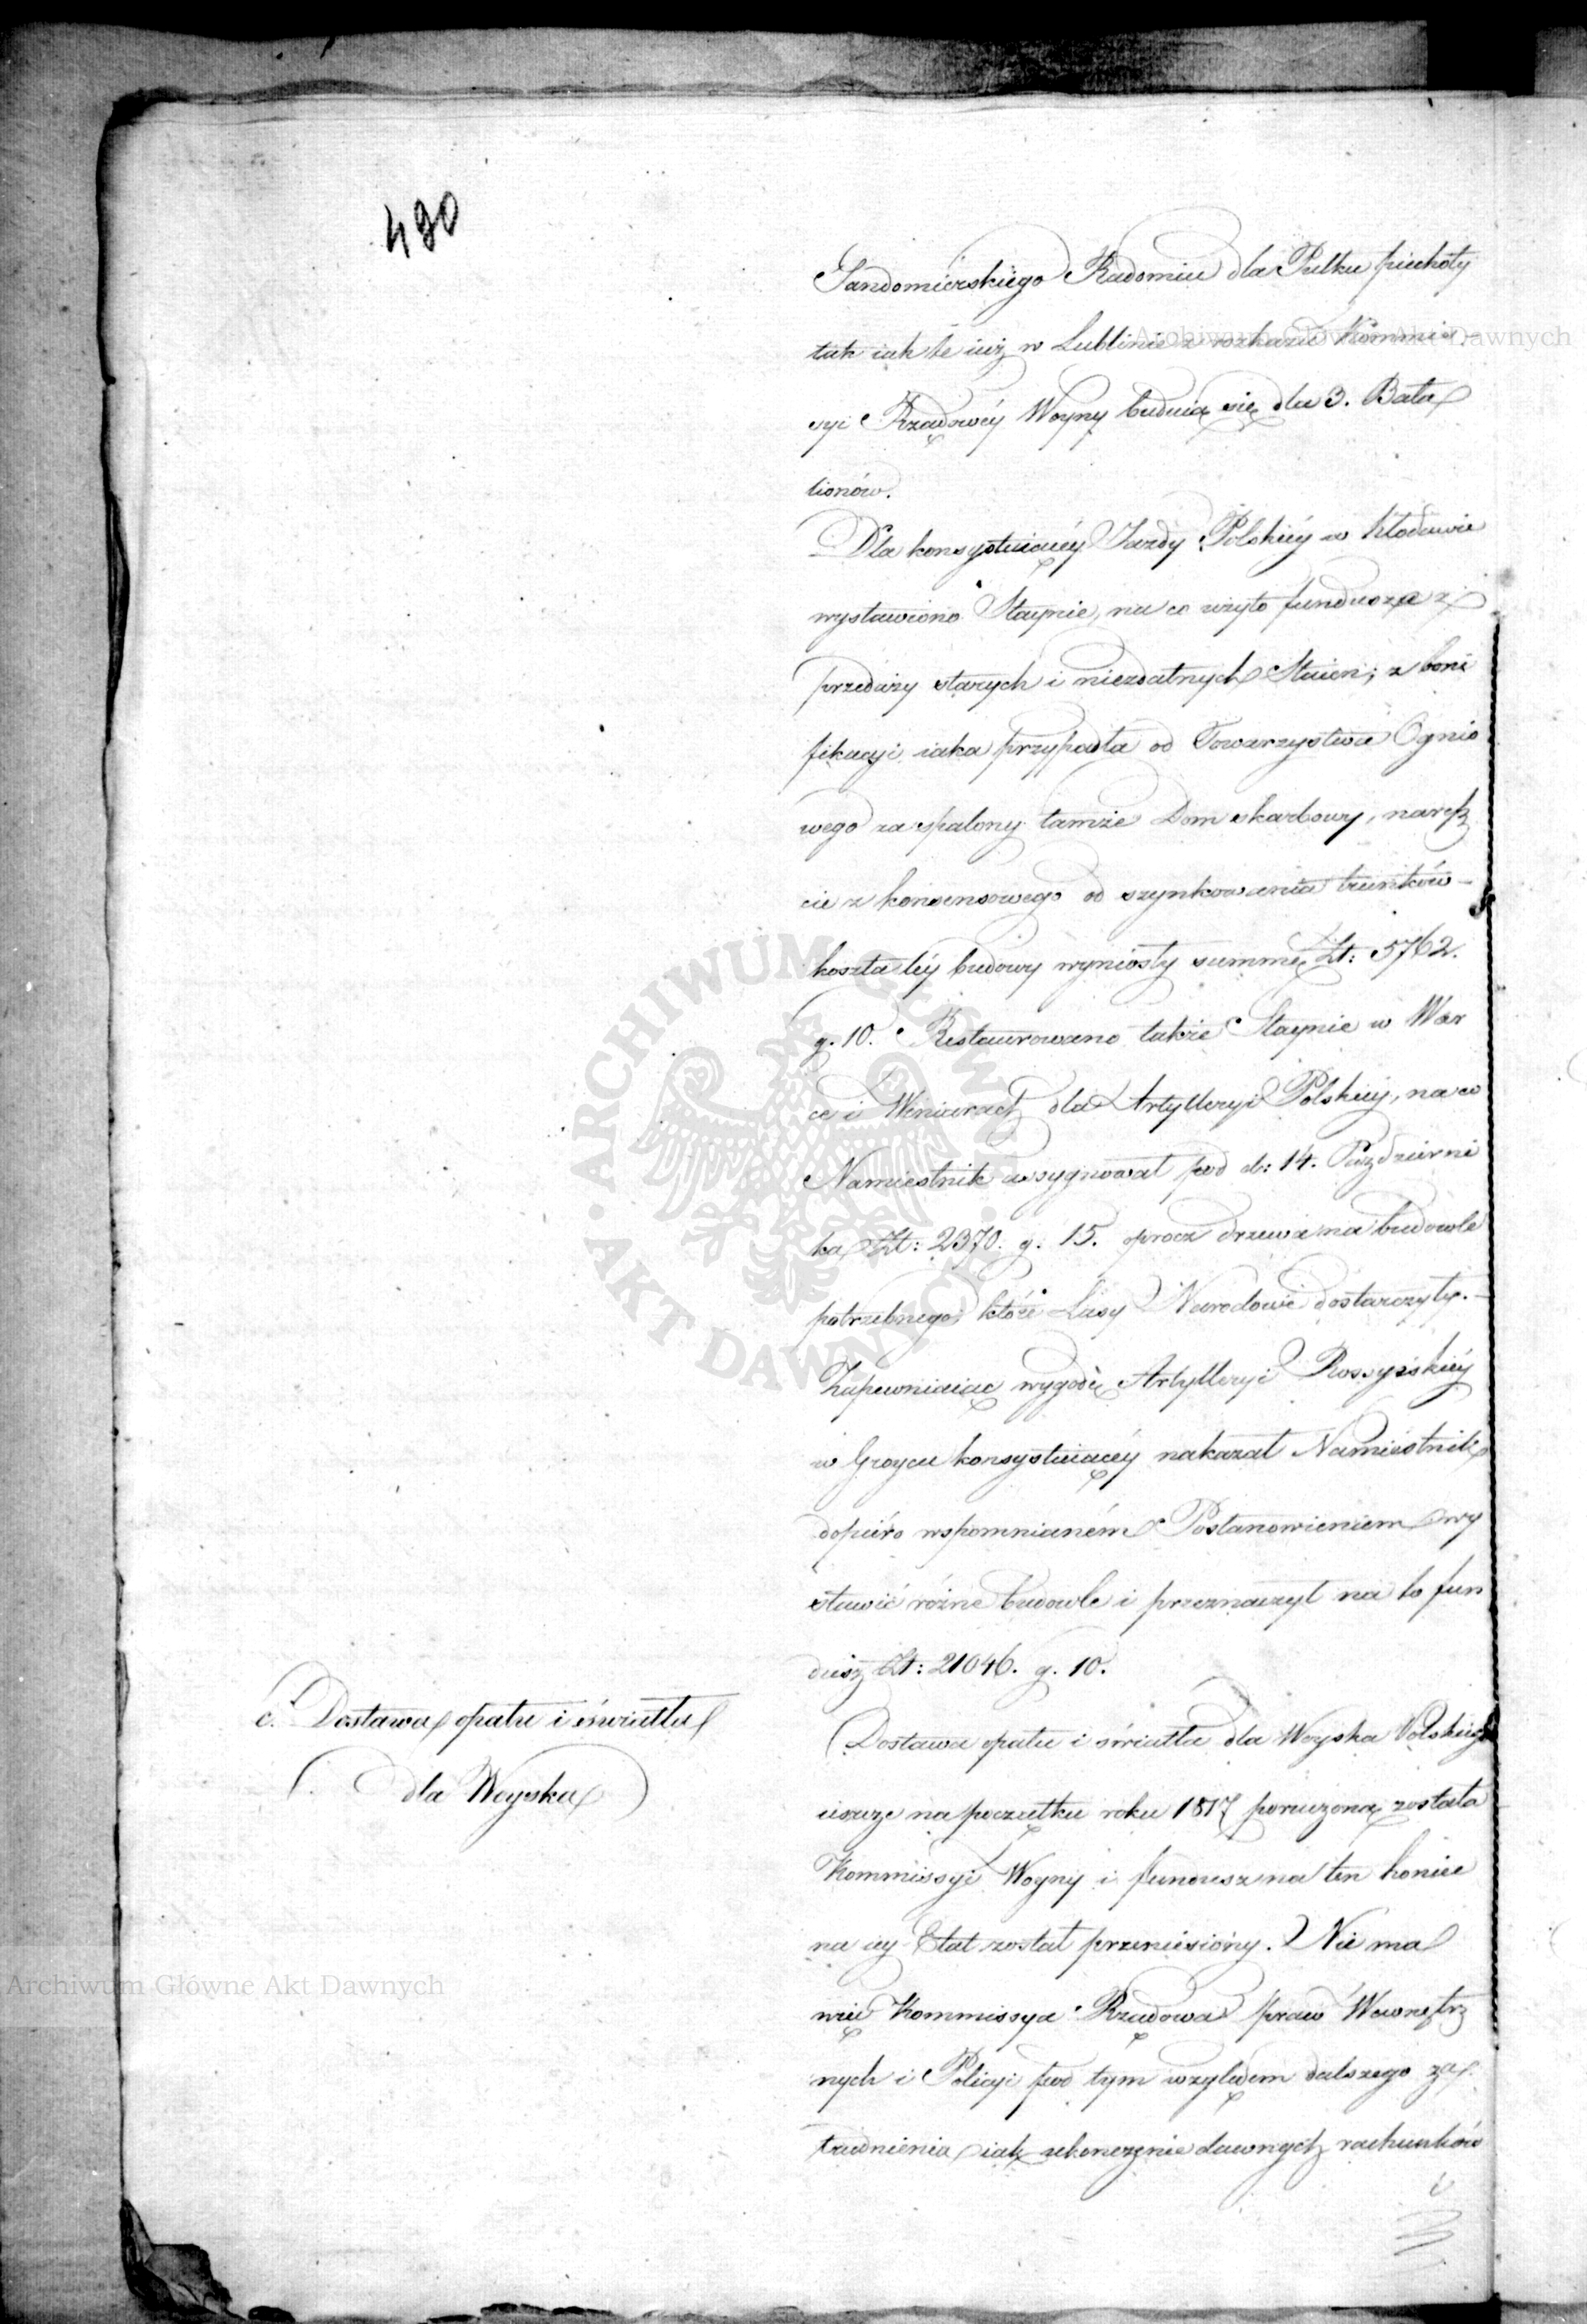 490
Sandomierskiego Radomiu dla Pułku piechoty
tak iak te iuż w Lublinie z rozkazu Kommis-
syi Rządowéy Woyny buduią się dla 3. Bata
lionów.
Dla konsystuiącéy Jazdy Polskiéy w Kłodawie
wystawiono Staynie, na co użyto fundusza z
przedaży starych i niezdatnych Staien; z boni
fikacyi iaka przypadła od Towarzystwa Ognio
wego za spalony tamże Dom skarbowy, naresz
cie z konsensowego od szynkowania trunków -
koszta téy budowy wyniosły summę Zł: 5762.
g. 10. Restaurowano także Staynie w War
ce i Winiarach dla Artylleryi Polskiéy, na co
Namiestnik assygnował pod d: 14. Październi
ka Zł: 2370. g. 15. oprocz drzewa na budowle
potrzebnego, które Lasy Narodowe dostarczyły. -
Zapewniaiąc wygodę Artylleryi Rossyiskiéy
w Groycu konsystuiącéy nakazał Namiestnik
dopiéro wspomnianém Postanowieniem wy
stawić różne budowle i przeznaczył na to fun
dusz Zł: 21046. g. 10.
c. Dostawa opału i światła
dla Woyska
Dostawa opału i światła dla Woyska Polskiego
ieszcze na początku roku 1817 poruczoną została
Kommissyi Woyny i fundusz na ten koniec
na iey Etat został przeniesiony. Nie ma
więc Kommissya Rządowa spraw Wewnętrz
nych i Policyi pod tym względem dalszego za
trudnienia iak ukończenie dawnych rachunków
i
Archiwum Główne Akt Dawnych
Archiwum Główne Akt Dawnych
ARCHIWUM GŁÓWNE · AKT DAWNYCH ·